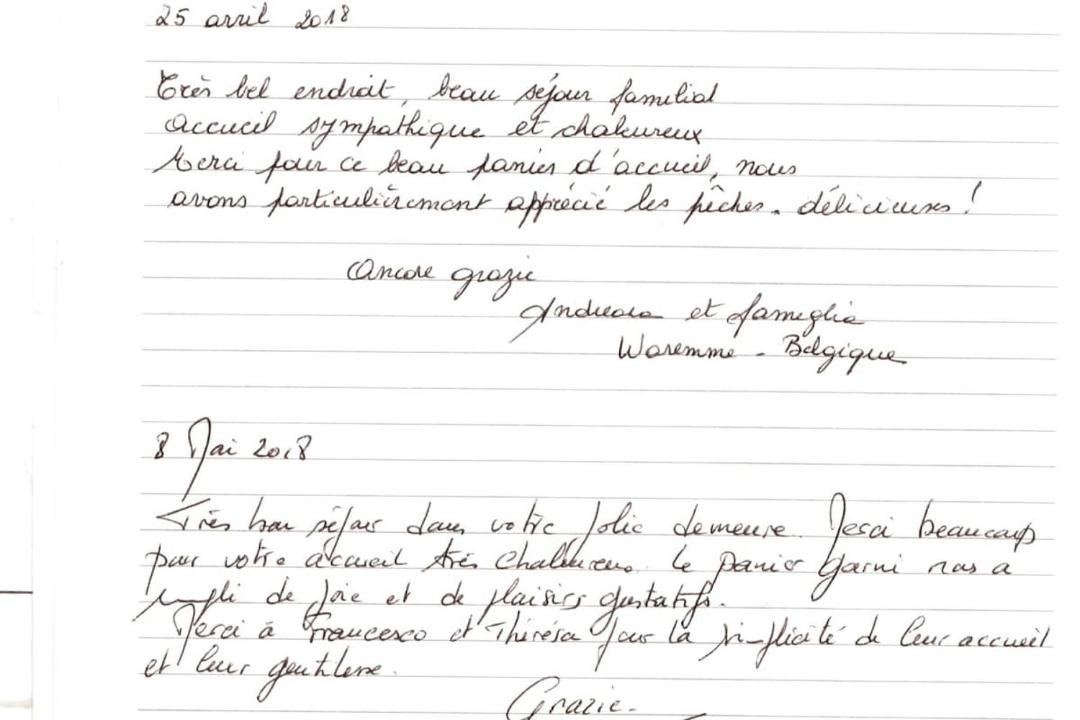 25 avril 2018
Très bel endroit, beau séjour familial
accueil sympathique et chaleureux
Merci pour ce beau panier d'accueil, nous
avons particulièrement apprécié les pêches. délicieuses !
Ancore grazie
et fameglia
Waremme - Belgique
8 Mai 2018
Très bon séjour dans votre jolie demeure. Merci beaucoup
pour votre accueil très chaleureux. Le panier garni nous a
empli de joie et de plaisirs gustatifs.
Merci à Francesco et Thérésa pour la simplicité de leur accueil
et leur gentillesse.
Grazie.